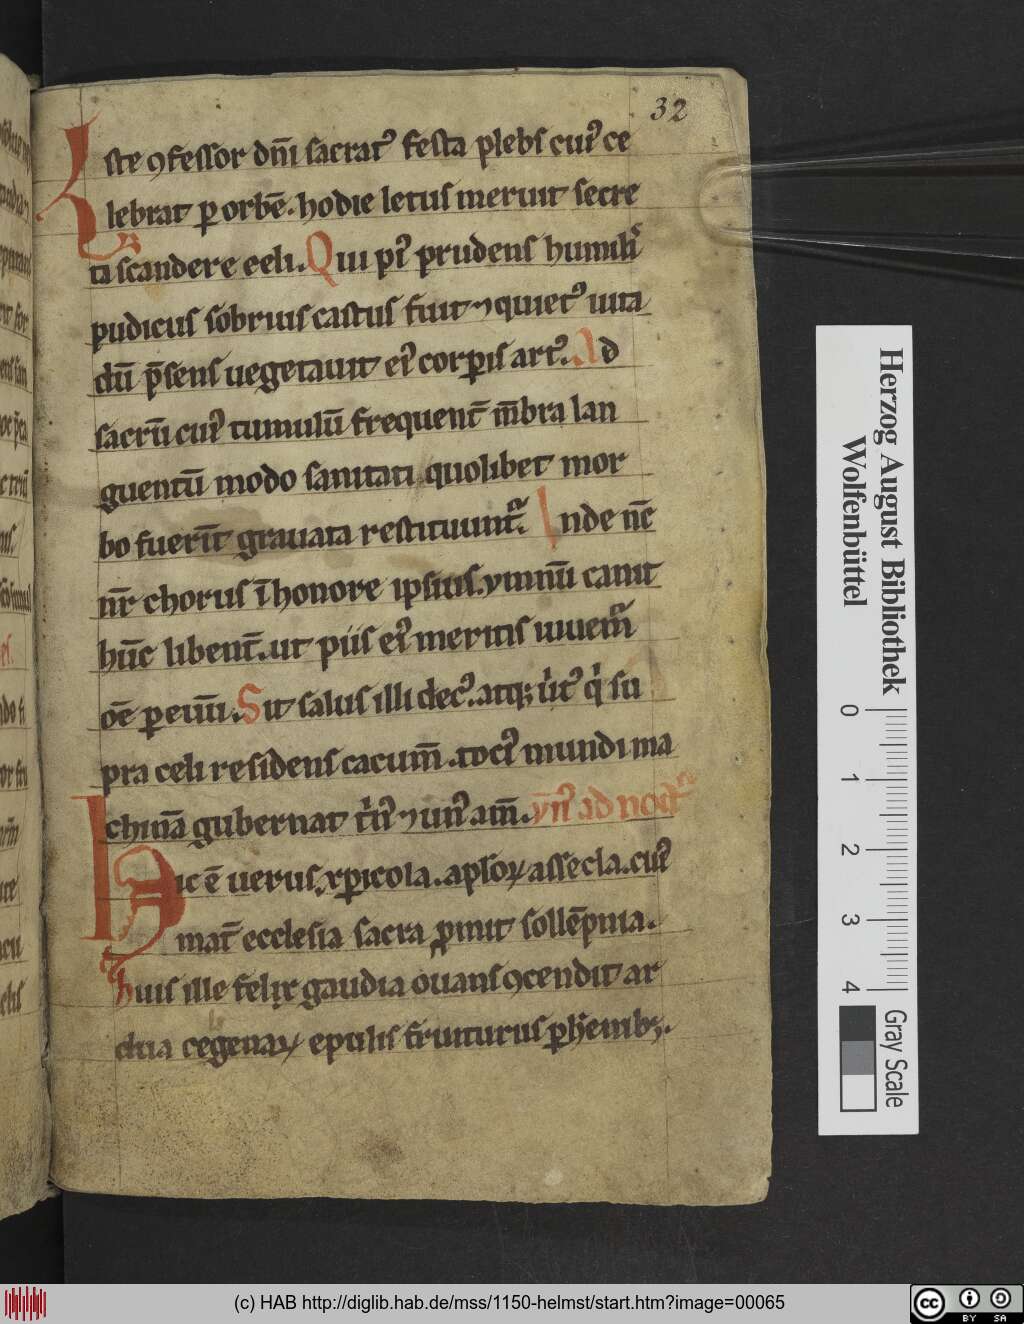 32
Iste ꝯfessor dn̄i sacratꝰ festa plebs cuiꝰ ce
lebrat ꝑ orbē. hodie letus meruit secre
ta scandere celi. Qui piꝰ prudens humilꝭ
pudicus sobrius castus fuit ⁊ quietꝰ uita
dū p̄sens uegetauit eiꝰ corꝑis artꝰ. Ad
sacrū cuiꝰ tumulū frequent̄ m̄bra lan
guentū modo sanitati quolibet mor
bo fuerīt grauata restituunt᷑. Inde n̄c
nr̄ chorus ī honore ipsius. ymnū canit
hūc libent̄. ut piis eiꝰ meritis iuuem᷑
oē ꝑ euū. Sit salus illi decꝰ. atqꝫ uͥtꝰ qͥ su
pra celi residens cacum̄. tociꝰ mundi ma
chinā gubernat tͥnꝰ ⁊ unꝰ am̄. ȳnꝰ ad noct᷑
Hic ē uerus xp̄icola. apl'oꝝ assecla. cuiꝰ
mat̄ ecclesia sacra ꝓmit sollēpnia.
Huius ille felix gaudia ouans ꝯcendit ar
dua cegenaꝝ epulis fruiturus ꝑhēnibꝫ.
Herzog August Bibliothek
Wolfenbüttel
0 1 2 3 4
Gray Scale
(c) HAB http://diglib.hab.de/mss/1150-helmst/start.htm?image=00065
cc BY SA